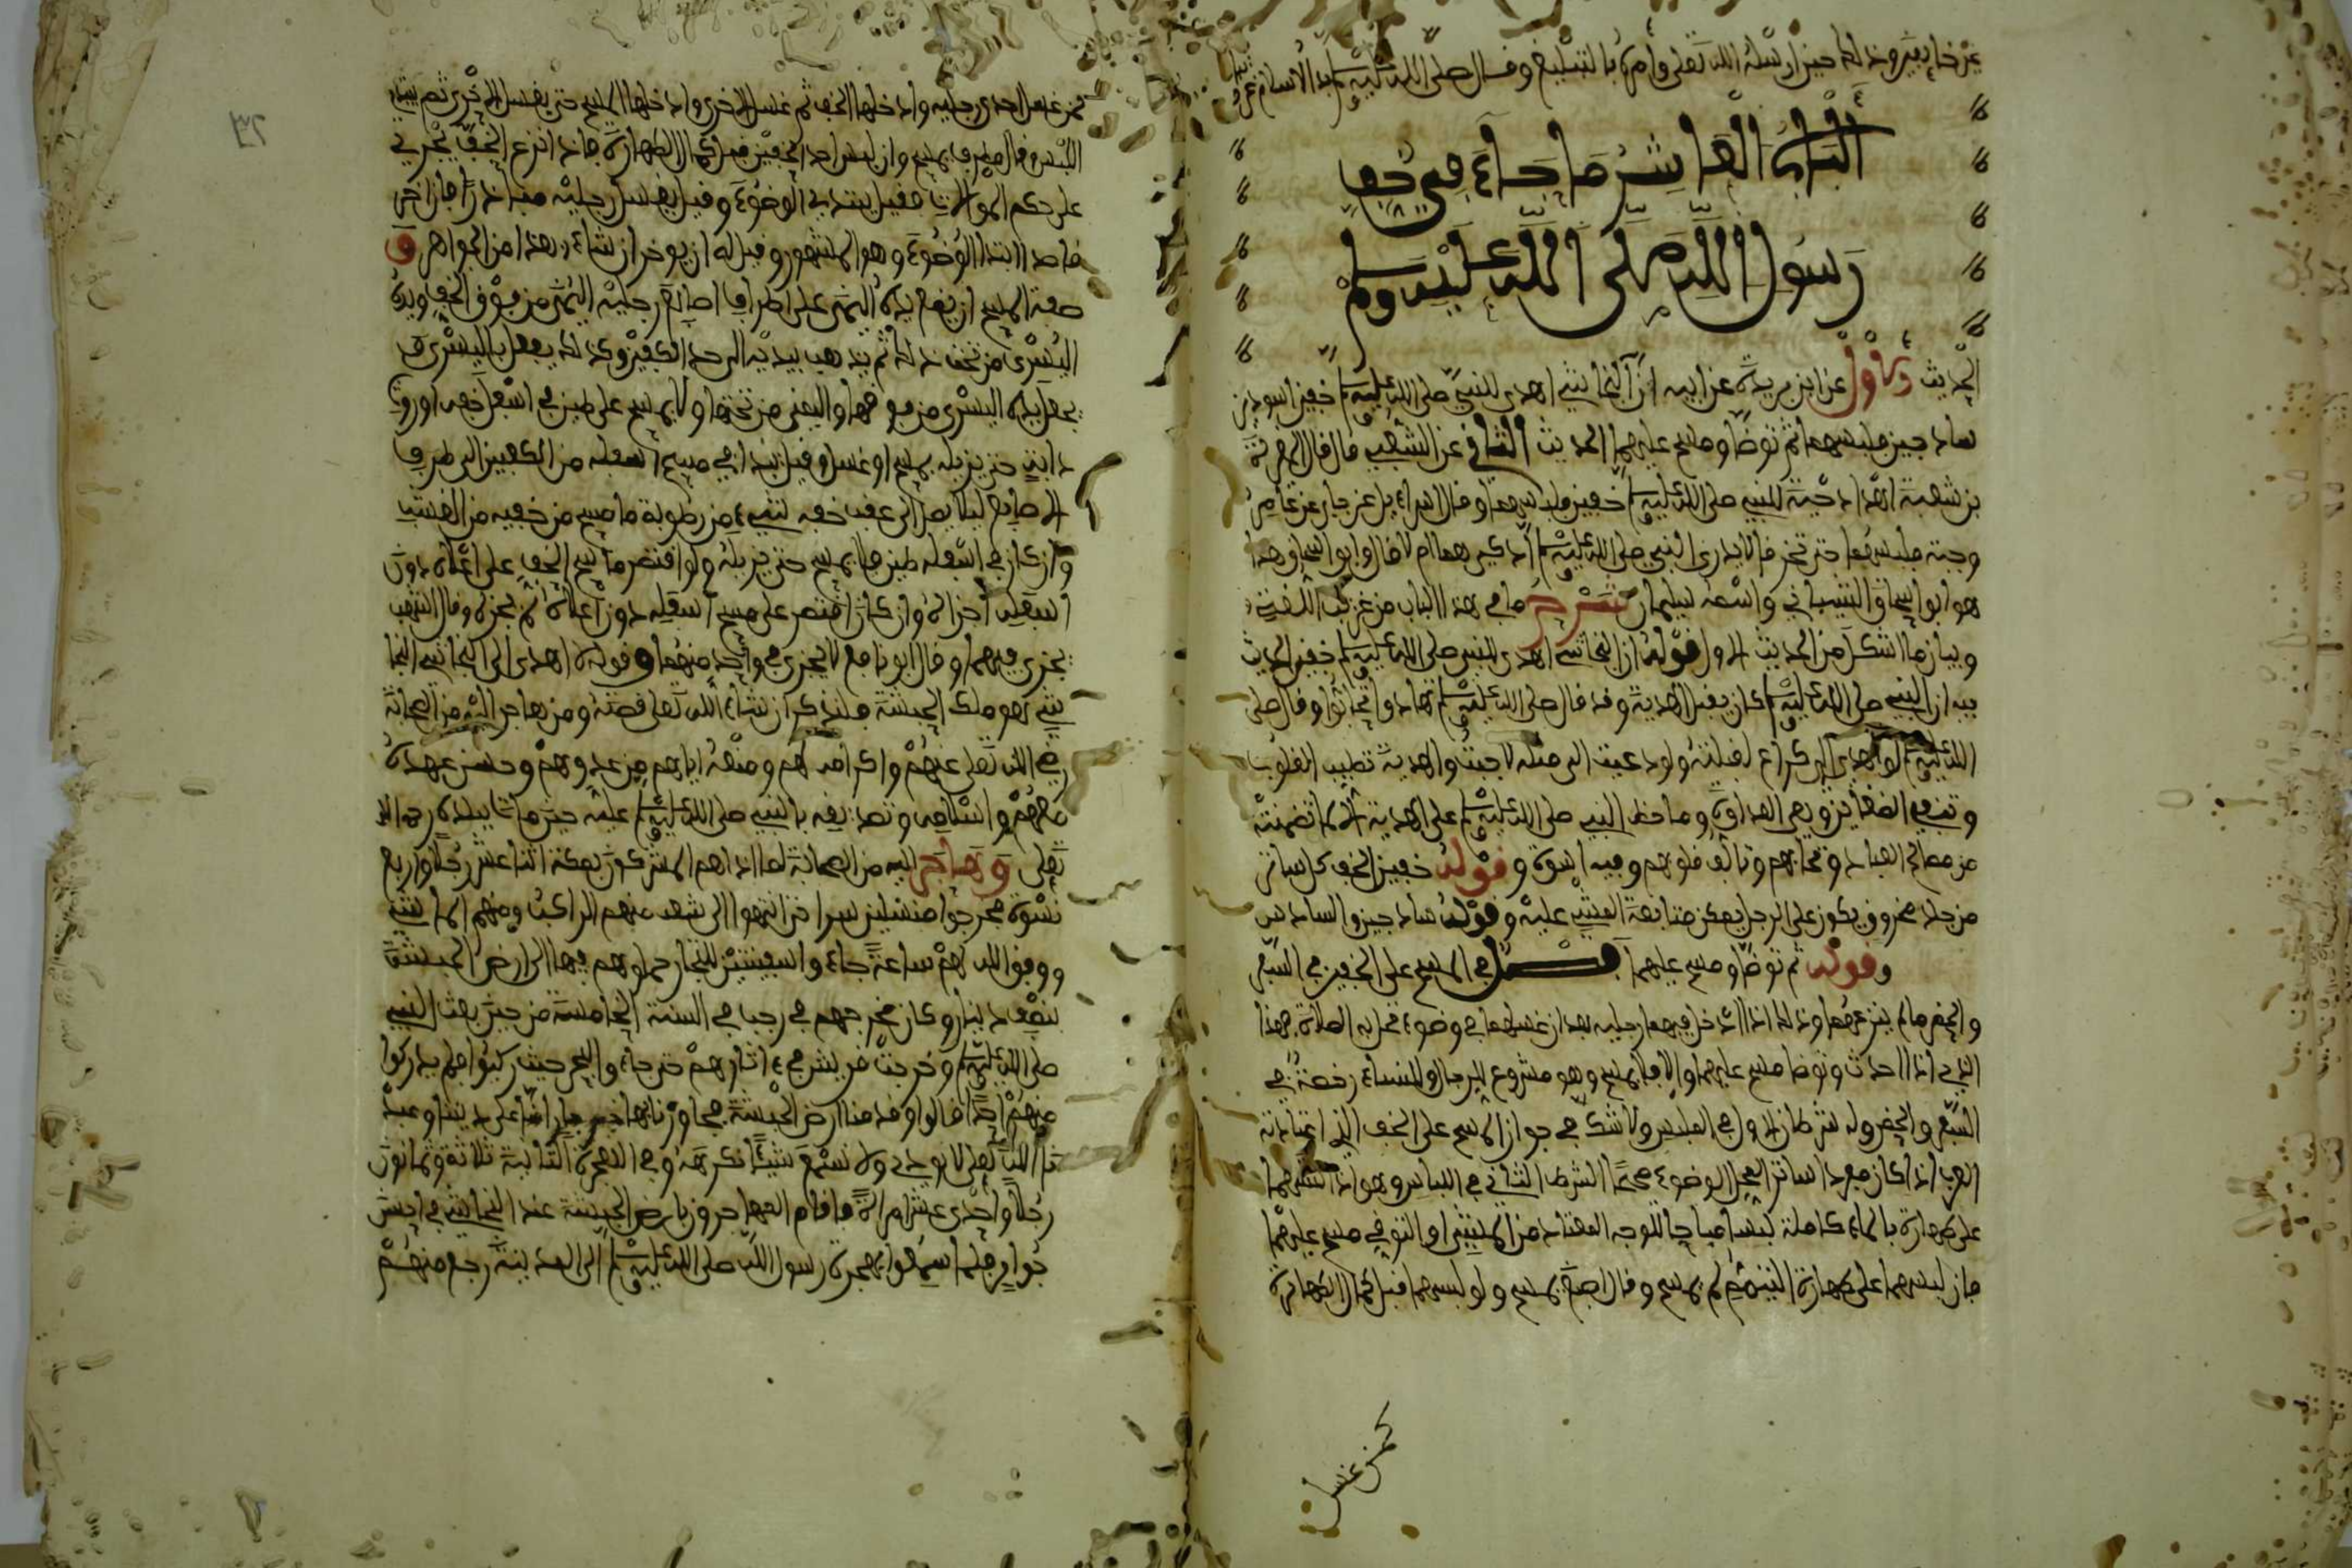 عن خايفين وذلك حين ارسله الله تعلى وامره بالتبليغ وقال صلى الله عليه وسلم بدا الاسلام غريبا
الباب العاشر ما جاء في خف
رسول الله صلى الله عليه وسلم
الحديث الاول عن ابن بريدة عن ابيه ان النجاشي اهدى للنبي صلى الله عليه وسلم خفين اسودين
ساذجين فلبسهما ثم توضا ومسح عليهما الحديث الثاني عن الشعبي قال قال المغيرة
بن شعبة اهدا دحية للنبي صلى الله عليه وسلم خفين فلبسهما وقال اسراءيل عن جابر عن عامر
وجبة فلبسهما حتى تخرقا لا يدرى النبي صلى الله عليه وسلم اذكي هما ام لا قال ابو عيسى وهذا
هو ابو اسحاق الشيباني واسمه سليمان شرح ما في هذا الباب من غريب اللغة
وبيان ما اشكل من الحديث الاول قوله ان النجاشي اهدى للنبي صلى الله عليه وسلم خفين الحديث
فيه ان النبي صلى الله عليه وسلم كان يقبل الهدية وقد قال صلى الله عليه وسلم تهادوا تحابوا وقال صلى
الله عليه وسلم لو اهدي الي كراع لقبلته ولو دعيت الى مثله لاجبت والهدية تطيب القلوب
وتنفي الضغاين وما حظ النبي صلى الله عليه وسلم على الهدية الا لما تضمنته
من مصالح العباد وتحاببهم وتالف قلوبهم وفيه اسوة وقوله خفين الخف كل ساتر
من جلد مخروز يكون على الرجل يمكن متابعة المشي عليه وقوله ساذجين والساذج
وقوله ثم توضا ومسح عليهما فصل في المسح على الخفين في السفر
والحضر ما لم ينزعهما وذلك اذا ادخل فيهما رجليه بعد ان غسلهما في وضوء تحل به الصلاة فهذا
الذي اذا احدث وتوضا مسح عليهما والا فلا يمسح وهو مشروع للرجال والنساء رخصة في
السفر والحضر وله شرطان الاول في الملبس ولا شك في جواز المسح على الخف الذي اعتادته
العرب اذا كان مفردا ساترا لمحل الوضوء صحيحا الشرط الثاني في اللباس وهو اذا لبسهما
على طهارة بالماء كاملة لبسا مباحا للوجه المعتاد من المشي او التوقي مسح عليهما
فان لبسهما على طهارة التيمم لم يمسح وقال اصبغ يمسح ولو لبسهما قبل كمال الطهارة
كمن غسل
كمن غسل احدى رجليه وادخلها الخف ثم غسل الاخرى وادخلها لم يمسح حتى يغسل الاخرى ثم يبتدي
اللبس وقال مطرف يمسح وان لبس احد الخفين قبل كمال الطهارة فاذا نزع الخف يجري
على حكم الموالات فقيل يبتدي الوضوء وقيل يغسل رجليه مبادرا فان اخر
قاصدا ابتدا الوضوء وهو المشهور وقيل له ان يوخر ان شاء وهذا من الجواهر و
صفة المسح ان يضع يده اليمنى على اطراف اصابع رجليه اليمنى من فوق الخف ويده
اليسرى من تحت ذلك ثم يذهب بيديه الى حد الكعبين وكذلك يفعل باليسرى
يجعل يده اليسرى من فوقها واليمنى من تحتها ولا يمسح على طين في اسفل خفه او روث
دابة حتى يزيله بمسح او غسل وقيل يبدا في مسح اسفله من الكعبين الى اطراف
الاصابع ليلا يصل الى عقب خفه شيء من رطوبة ما مسح من خفيه من القشب
وان كان في اسفله طين فلا يمسح حتى يزيله ولو اقتصر ماسح الخف على اعلاه دون
اسفله اجزاه وان كان اقتصر على مسح اسفله دون اعلاه لم يجزه وقال اشهب
يجزي فيهما وقال ابو نافع لا يجزي في واحد منهما وقوله اهدى الى النجاشي النجا
شي هو ملك الحبشة وسنذكر ان شاء الله تعلى قصته ومن هاجر اليه من الصحابة
رضي الله تعلى عنهم واكرامه لهم ومنعه اياهم من عدوهم وحسن عهده
معهم واسلامه وتصديقه بالنبي صلى الله عليه وسلم عليه حين مات ببلده رحمه الله
تعلى وهاجر اليه من الصحابة لما اذاهم المشركون بمكة اثنا عشر رجلا واربع
نسوة فخرجوا متسللين سرا حتى انتهوا الى منهم الراكب ومنهم الماشي
ووفق الله لهم ساعة جاءوا سفينتين للتجار حملوهم فيها الى ارض الحبشة
بنصف دينار وكان مخرجهم في رجب في السنة الخامسة من حين بعث النبي
صلى الله عليه وسلم وخرجت قريش في ءاثارهم حتى جاءوا البحر حيث ركبوا فلم يدركوا
منهم احدا قالوا وقدمنا ارض الحبشة فجاورنا بها خير جار امنا على ديننا وعبد
نا الله تعلى لا نوذى ولا نسمع شيئا نكرهه وفي الهجرة الثانية ثلاثة وثمانون
رجلا واحدى عشر امراة فاقام المهاجرون بارض الحبشة عند النجاشي في احسن
جوار فلما سمعوا بهجرة رسول الله صلى الله عليه وسلم الى المدينة رجع منهم